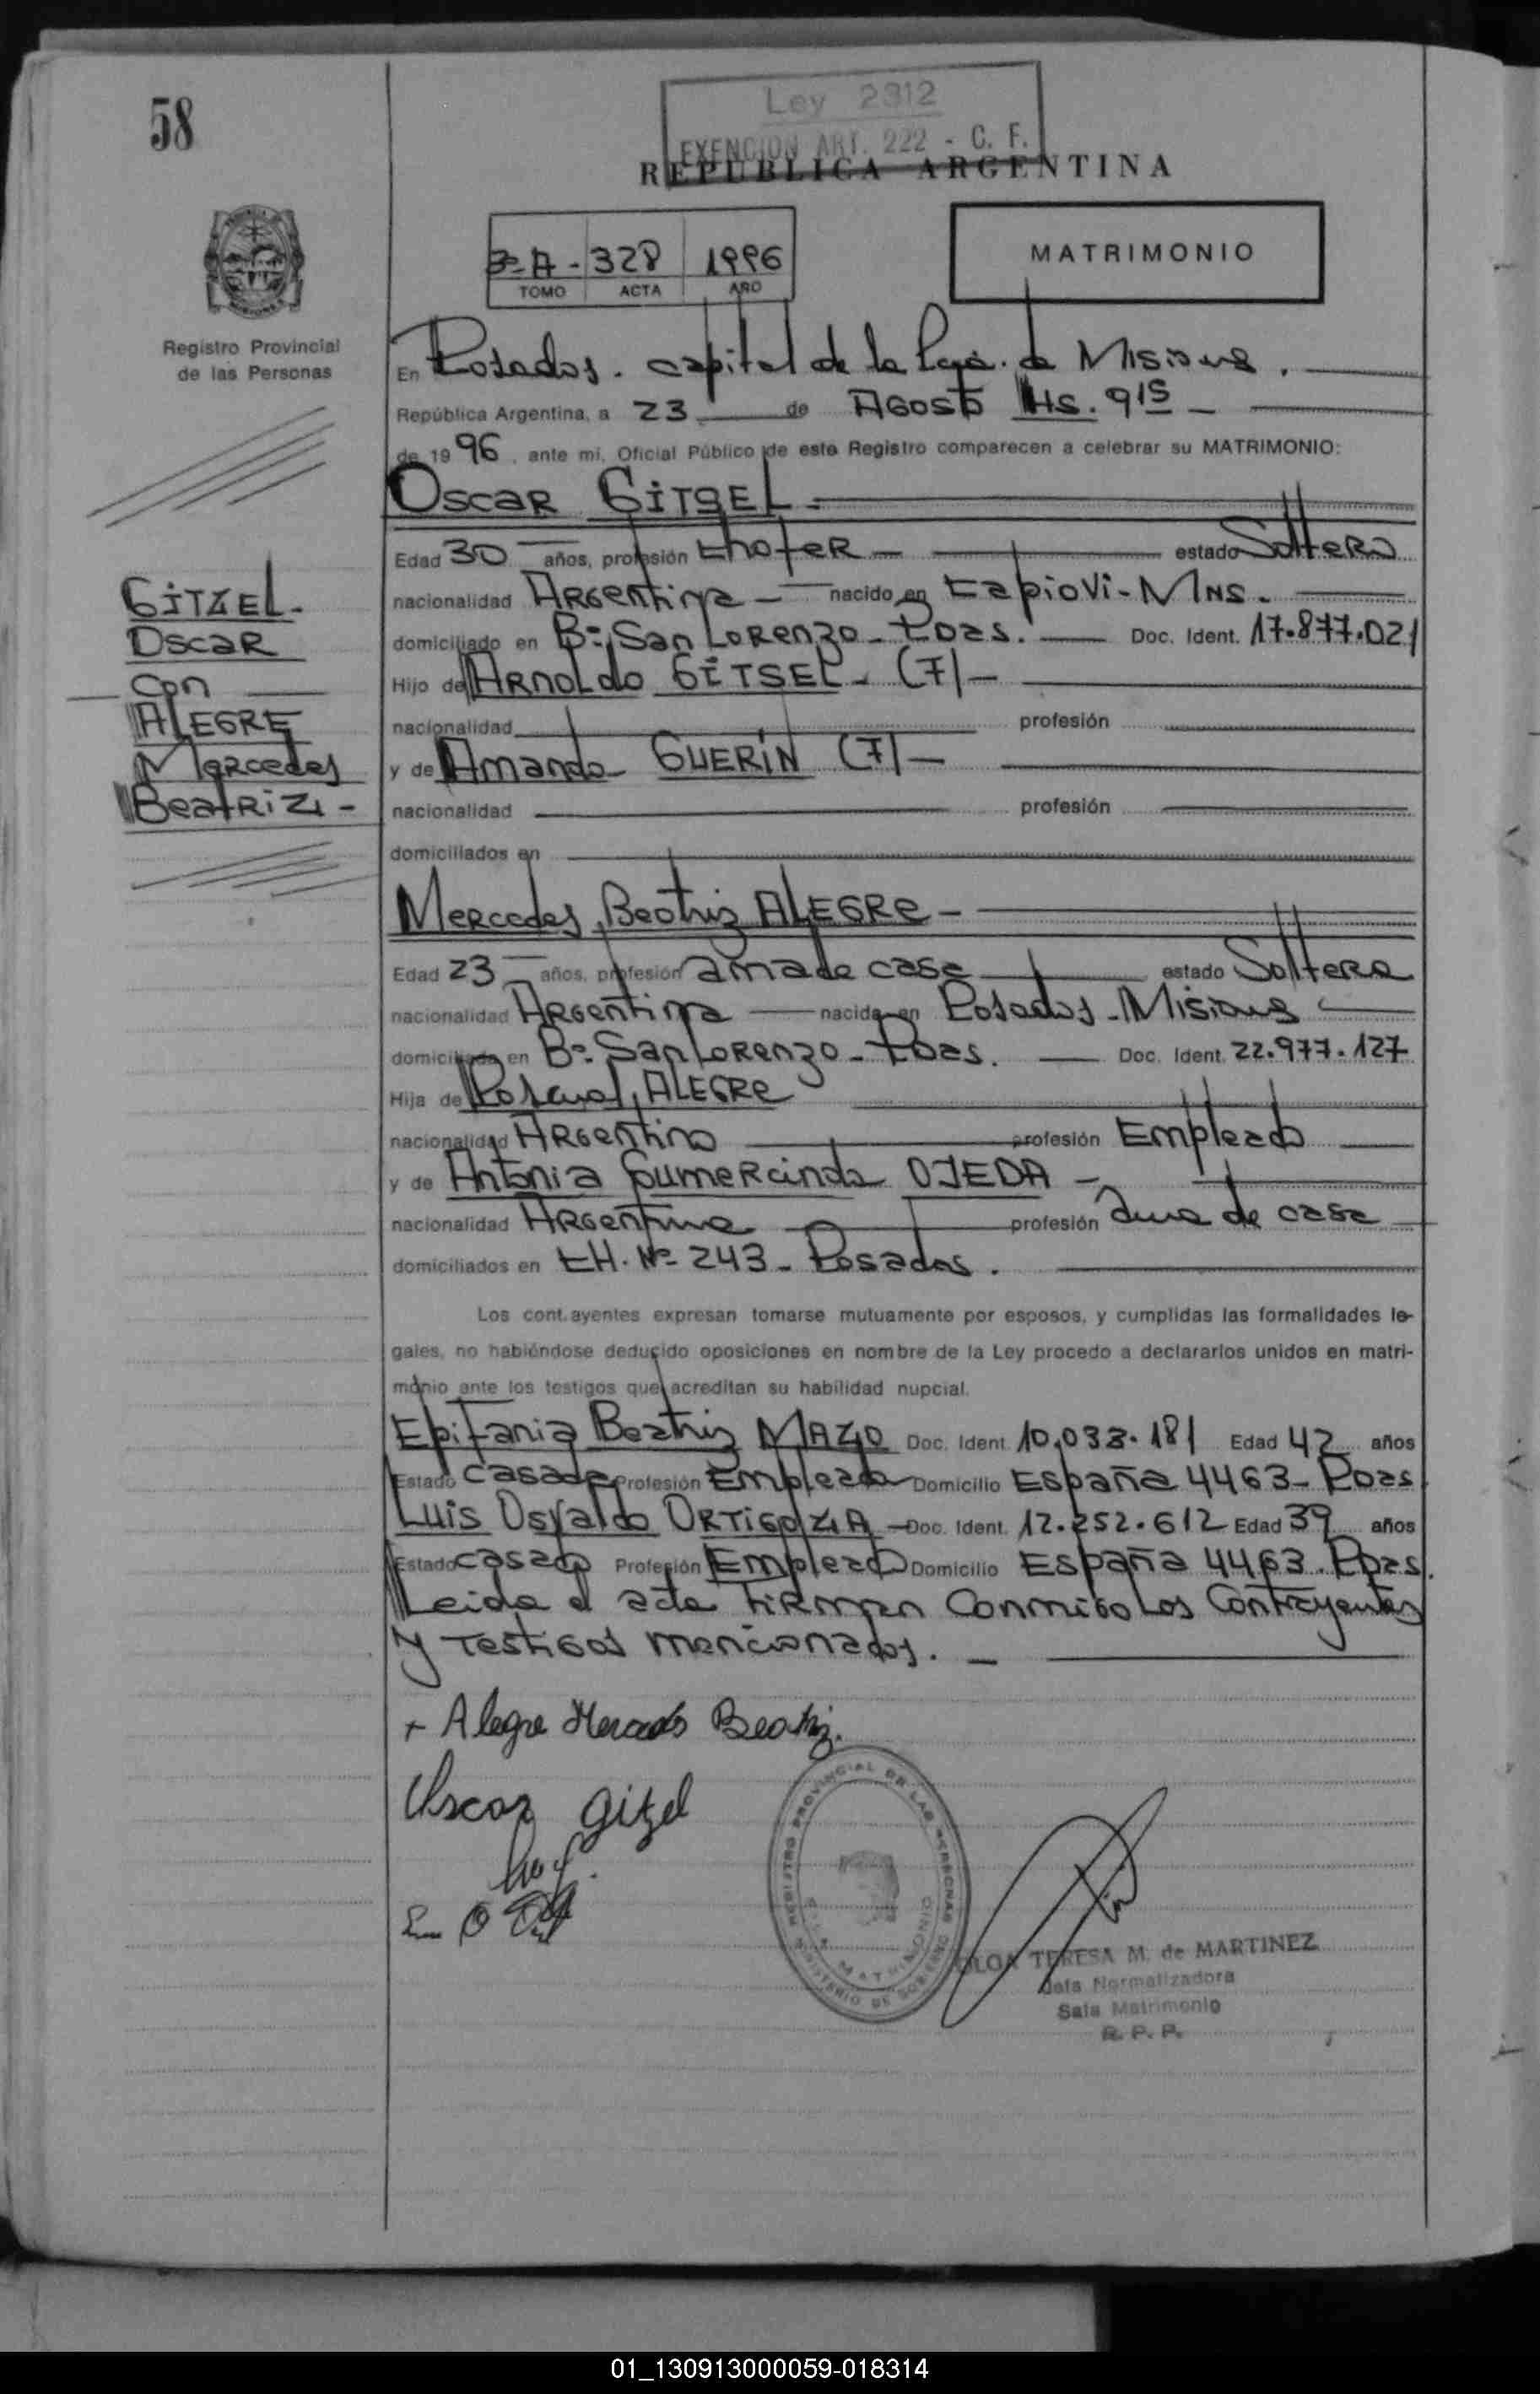 58
Ley 2312
EXENCION ART. 222 - C. F.
REPUBLICA ARGENTINA
3º A - 328 1996
TOMO ACTA AÑO
MATRIMONIO
Registro Provincial
de las Personas
En Posadas. capital de la Pcia. de Misiones.
República Argentina, a 23 de Agosto Hs. 9 15 -
de 19 96, ante mi, Oficial Público de este Registro comparecen a celebrar su MATRIMONIO:
Oscar GITSEL -
Edad 30 años, profesión Chofer - estado Soltero
nacionalidad Argentina - nacido en Capiovi - Mns. -
domiciliado en Bº San Lorenzo - Pdas. - Doc. Ident. 17.877.021
Hijo de Arnoldo GITSEL - (7) -
nacionalidad profesión
y de Amanda GUERIN (7) -
nacionalidad profesión
domiciliados en
GITZEL -
Oscar
Con
ALEGRE
Mercedes
Beatriz -
Mercedes, Beatriz ALEGRE -
Edad 23 años, profesión ama de casa estado Soltera
nacionalidad Argentina - nacida en Posadas - Misiones
domiciliada en Bº San Lorenzo - Pdas. - Doc. Ident. 22.977.127
Hija de Pascual, ALEGRE
nacionalidad Argentino profesión Empleado
y de Antonia Gumercinda OJEDA -
nacionalidad Argentina profesión Ama de casa
domiciliados en CH. Nº 243 - Posadas.
Los contrayentes expresan tomarse mutuamente por esposos, y cumplidas las formalidades le-
gales, no habiéndose deducido oposiciones en nombre de la Ley procedo a declararlos unidos en matri-
monio ante los testigos que acreditan su habilidad nupcial.
Epifania Beatriz MAZO Doc. Ident. 10.033.181 Edad 42 años
Estado casada Profesión Empleada Domicilio España 4463 - Pdas
Luis Osvaldo ORTIGOZA - Doc. Ident. 12.252.612 Edad 39 años
Estado casado Profesión Empleado Domicilio España 4463. Pdas.
Leida el acta firman conmigo los Contrayentes
y testigos mencionados. -
+ Alegre Mercedes Beatriz.
Oscar Gitzel
REGISTRO PROVINCIAL DE LAS PERSONAS
MATRIMONIO
MINISTERIO DE GOBIERNO
OLGA TERESA M. de MARTINEZ
Jefa Normalizadora
Sala Matrimonio
R. P. P.
01_130913000059-018314